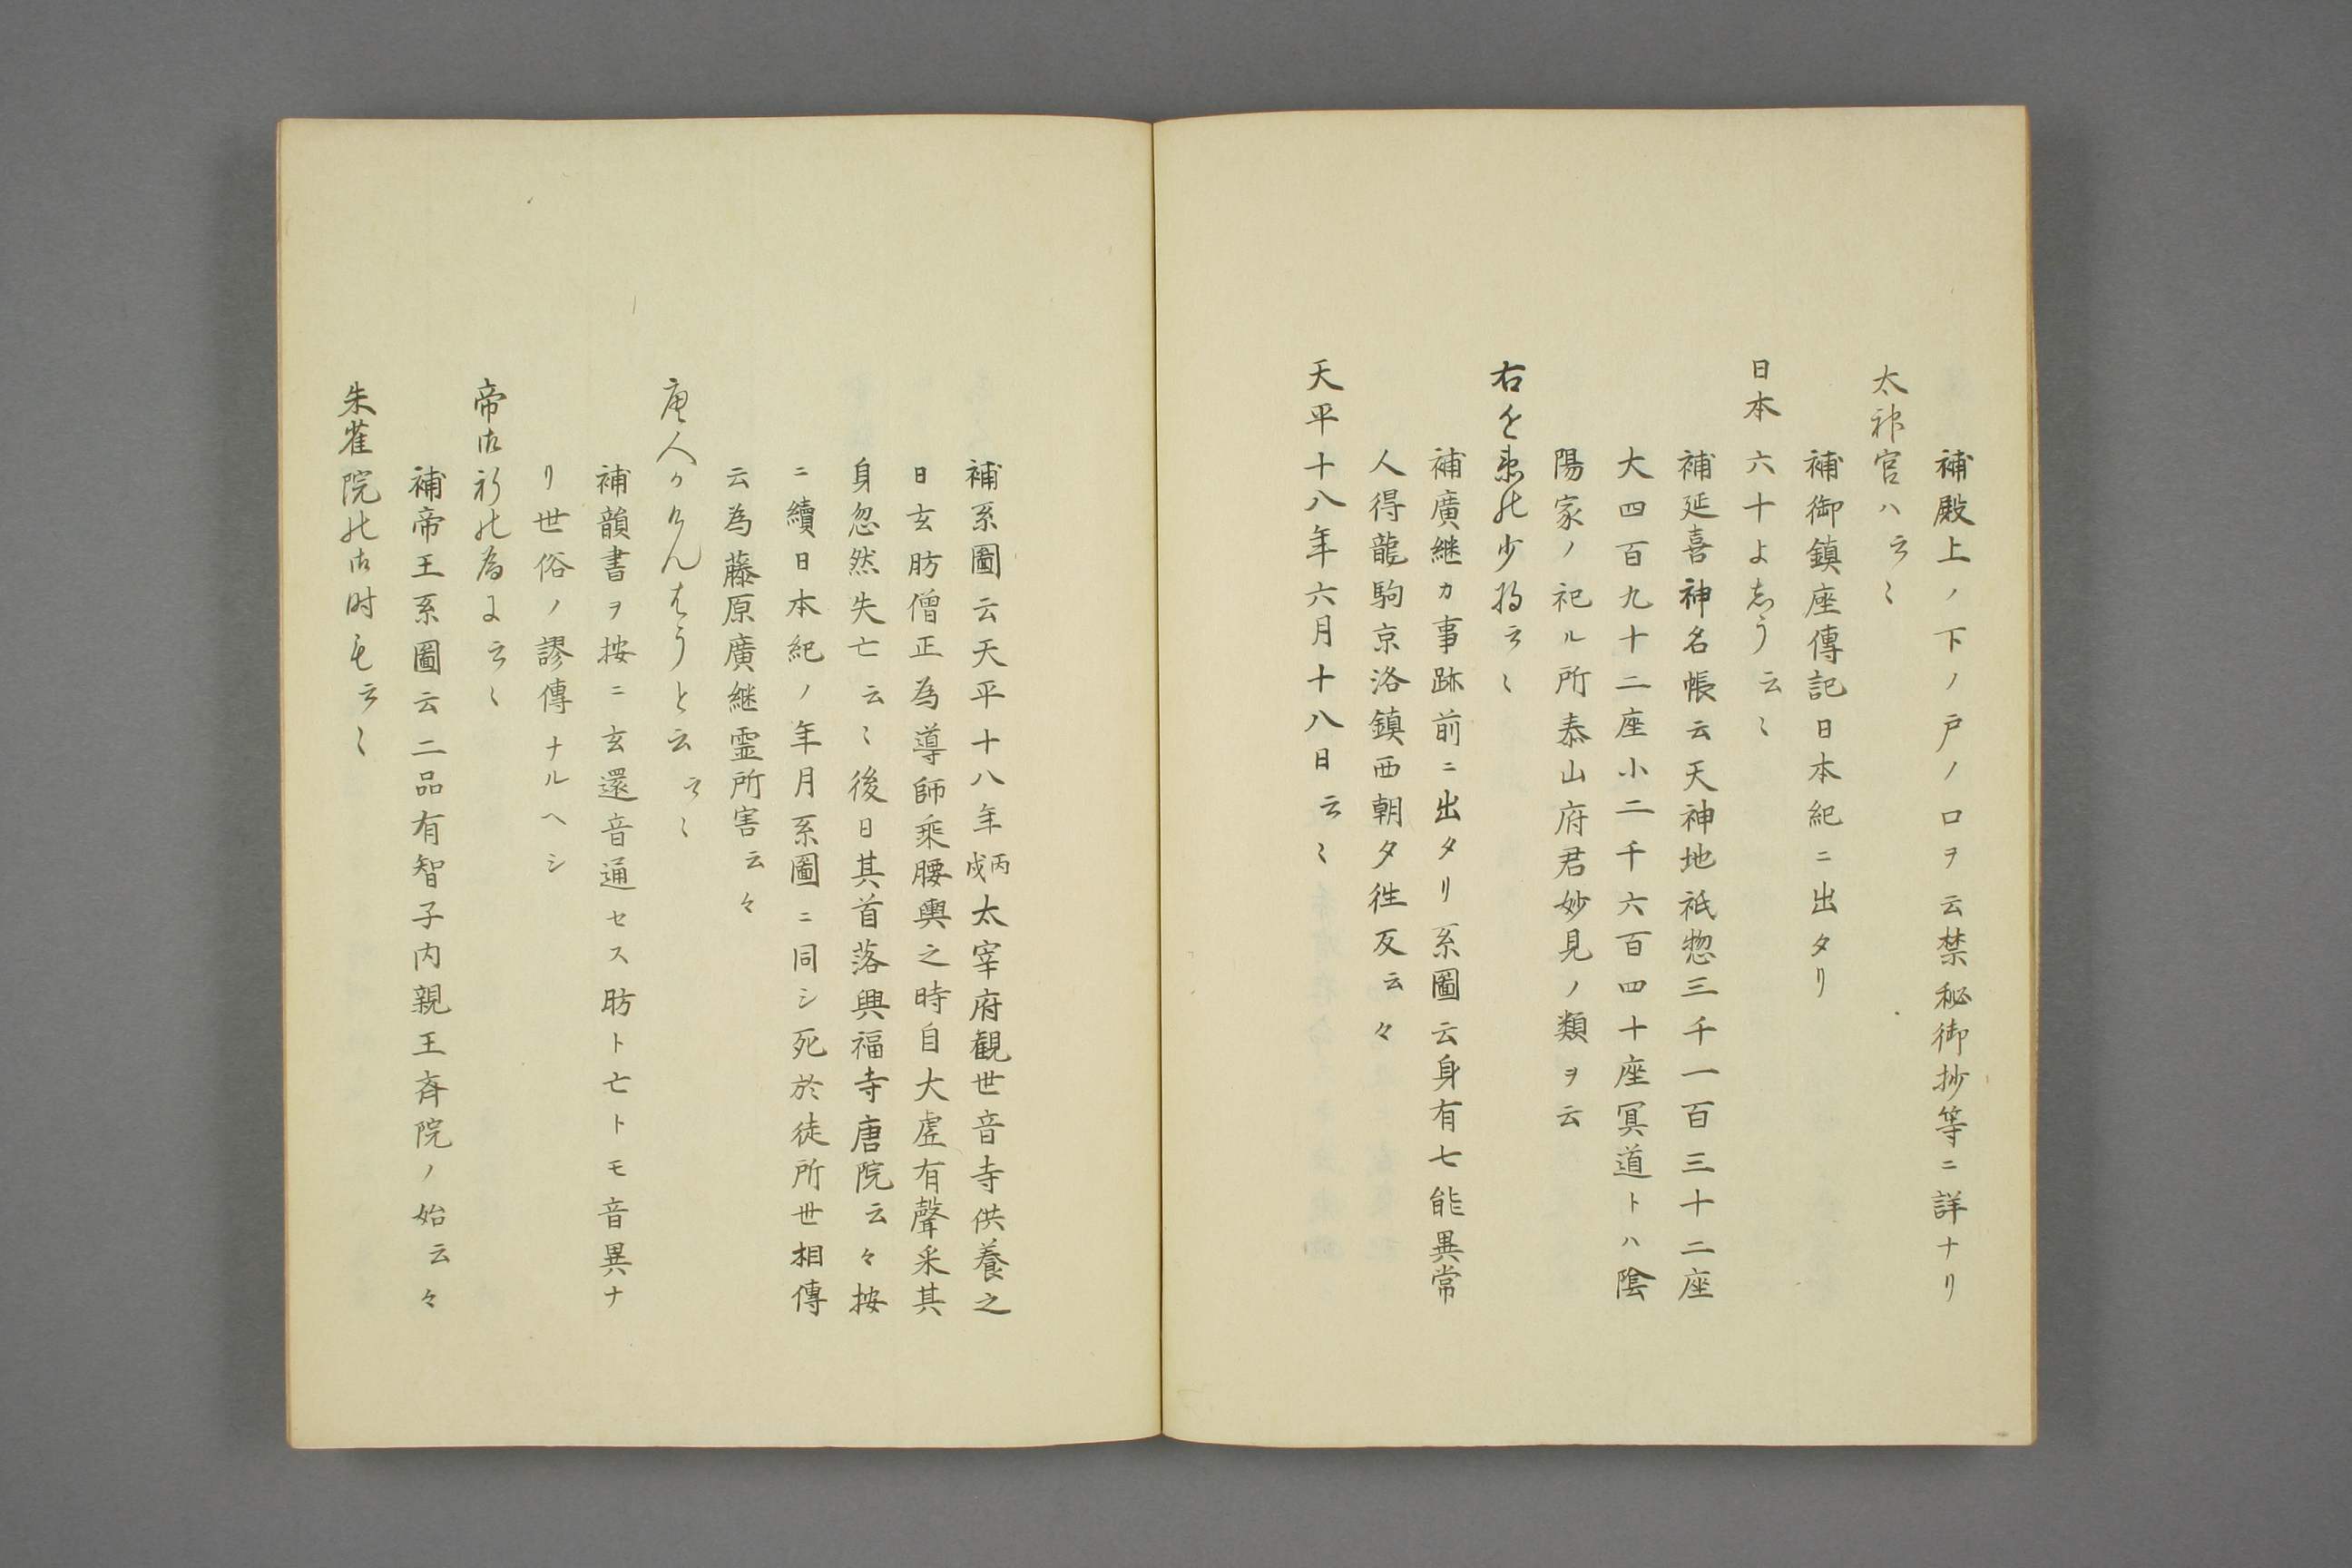 補殿上ノ下ノ戸ノ口ヲ云禁秘御抄等ニ詳ナリ
太神官ハ云〻
補御鎮座傳記日本紀ニ出タリ
日本六十よしう云〻
補延喜神名帳云天神地祇惣三千一百三十二座
大四百九十二座小二千六百四十座冥道トハ陰
陽家ノ祀ル所泰山府君妙見ノ類ヲ云
右を衛の少将云〻
補廣継カ事跡前ニ出タリ系圖云身有七能異常
人得龍駒京洛鎮西朝夕徃反云々
天平十八年六月十八日云〻
補系圖云天平十八年丙戌太宰府観世音寺供養之
日玄昉僧正為導師乘腰輿之時自大虚有聲采其
身忽然失亡云〻後日其首落興福寺唐院云々按
ニ續日本紀ノ年月系圖ニ同シ死於徒所世相傳
云為藤原廣継霊所害云々
唐人かけんはうと云云〻
補韻書ヲ按ニ玄還音通セス昉ト亡トモ音異ナ
リ世俗ノ謬傳ナルヘシ
帝御祈の為に云〻
補帝王系圖云二品有智子内親王斉院ノ始云々
朱雀院の御時も云〻